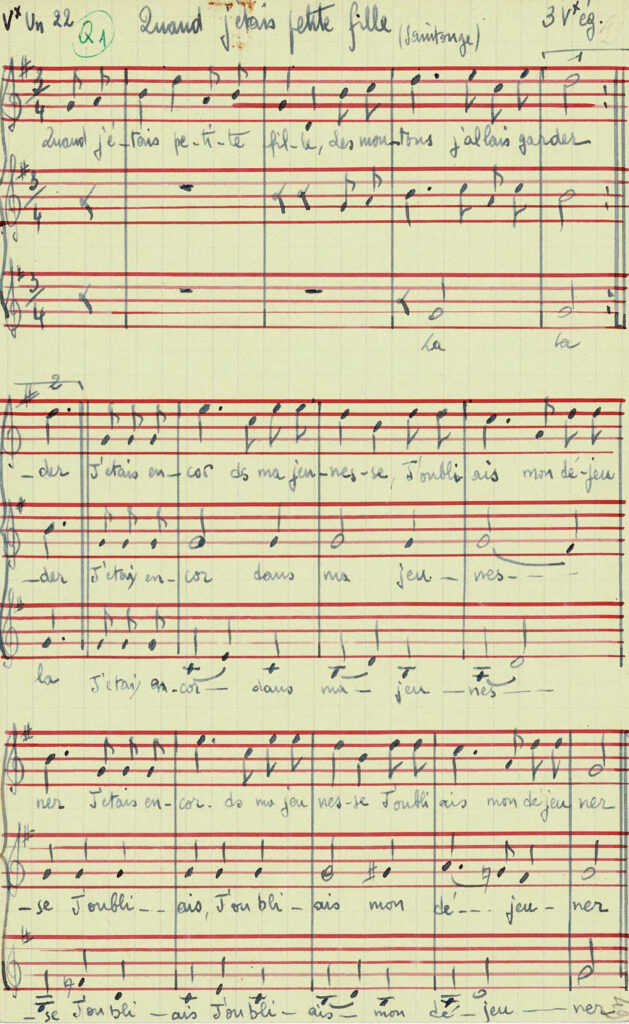 Vx Un 22 Q1 Quand j'étais petite fille (Saintonge) 3 Vx ég.
1
3/4
Quand j'é-tais pe-ti-te fil-le, des mou-tons j'allais garder
3/4
3/4
la la
2
-der J'étais en-cor ds ma jeu-nes-se, J'oubli ais mon dé-jeu
-der J'étais en-cor dans ma jeu-nes-
la J'étais en-cor- dans ma- jeu-nes-
ner J'étais en-cor. ds ma jeu nes-se J'oubli ais mon déjeu ner
-se J'oubli-ais, J'oubli-ais mon dé-jeu-ner
-se J'oubli-ais J'oubli-ais- mon dé-jeu-ner